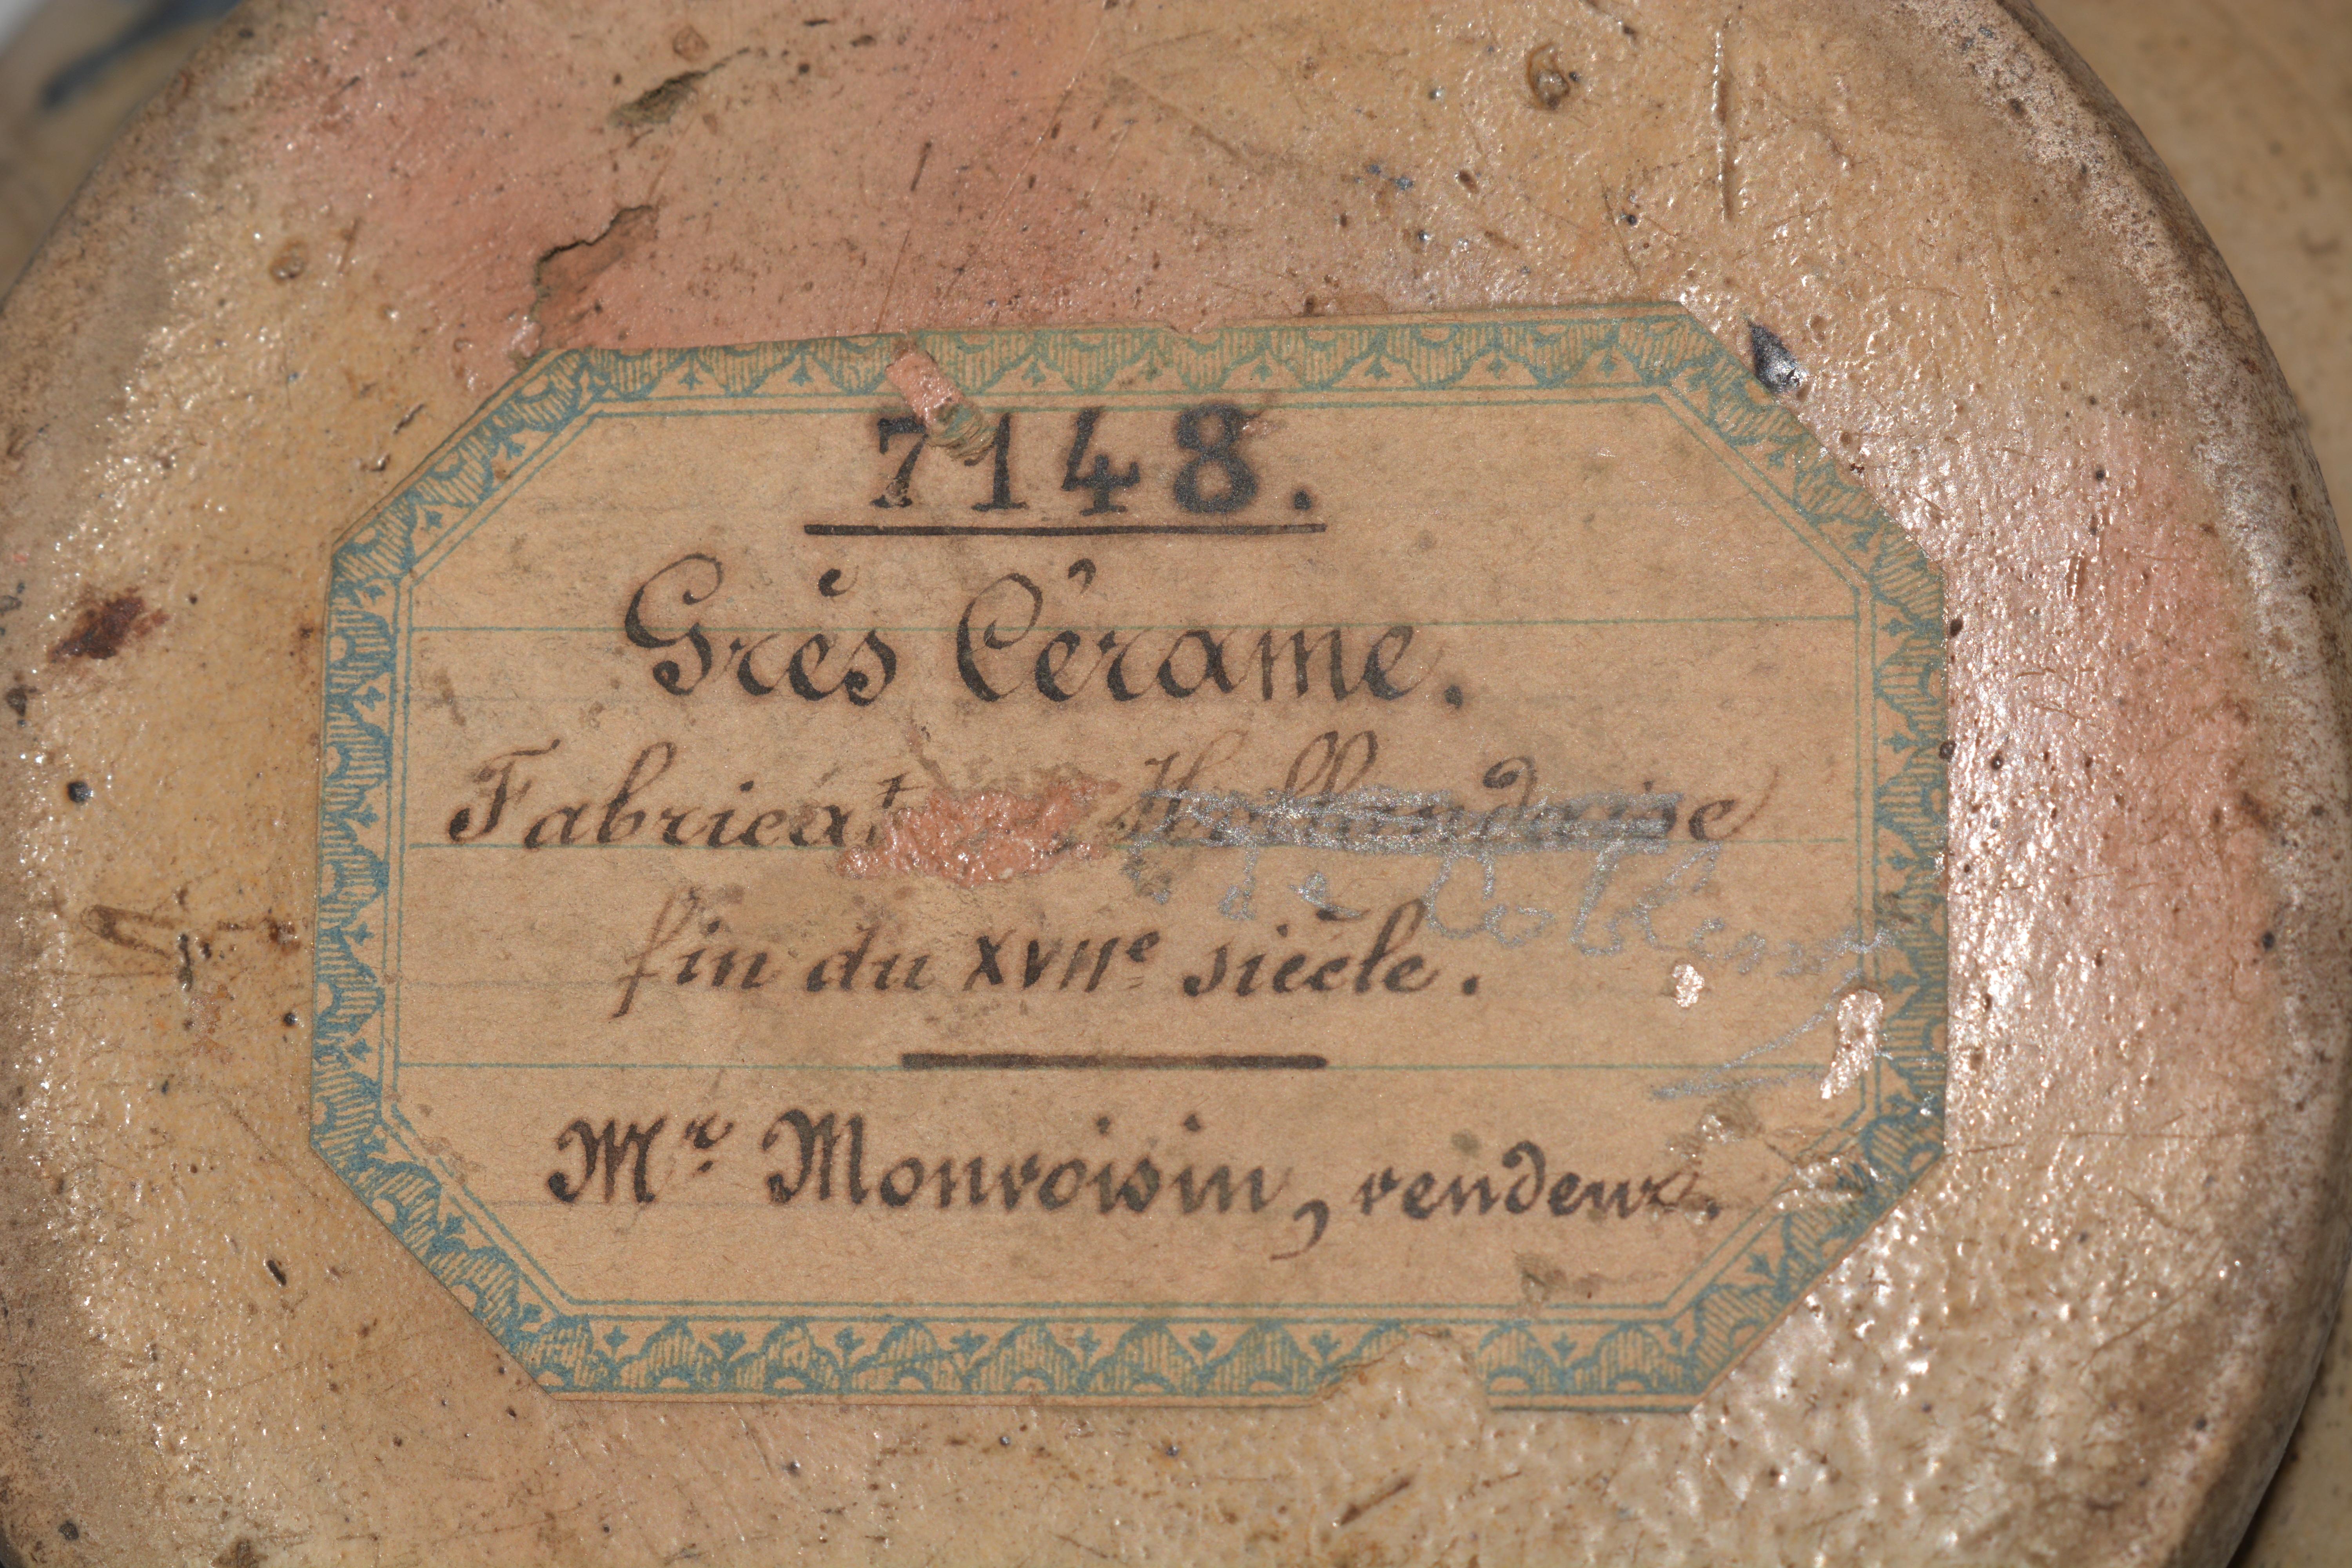 7148.
Grès Cérame.
Fabricat Hollandaise
de Coblenz
fin du XVIIe siècle.
Mr Monvoisin, vendeur.